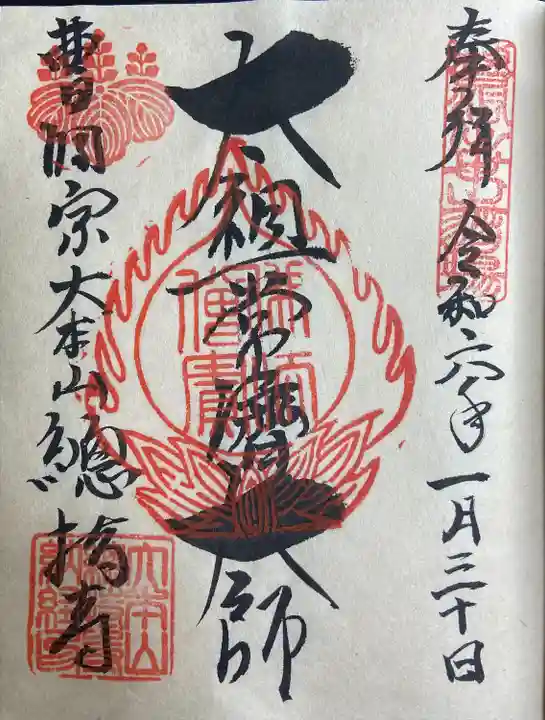 奉拝 令和六年一月三十日
太祖常濟大師
曹洞宗大本山總持寺